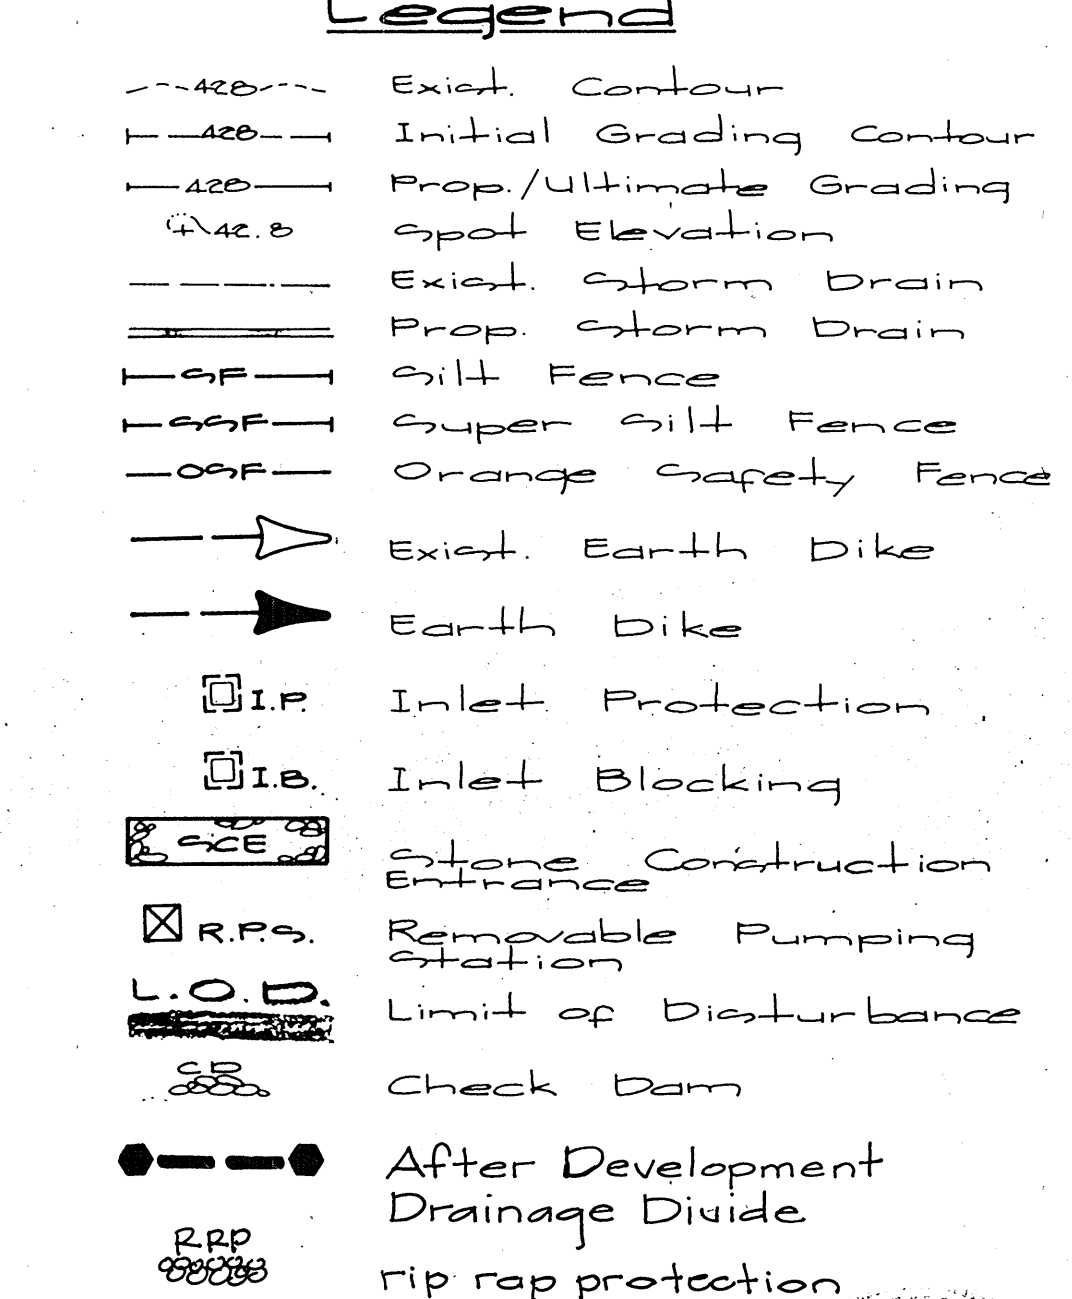 Legend
428 Exist. Contour
428 Initial Grading Contour
428 Prop./Ultimate Grading
42.8 Spot Elevation
Exist. Storm Drain
Prop. Storm Drain
SF Silt Fence
SSF Super Silt Fence
OSF Orange Safety Fence
Exist. Earth Dike
Earth Dike
I.P. Inlet Protection
I.B. Inlet Blocking
SCE Stone Construction
Entrance
R.P.S. Removable Pumping
Station
L.O.D. Limit of Disturbance
CD
Check Dam
After Development
Drainage Divide
RRP
rip rap protection